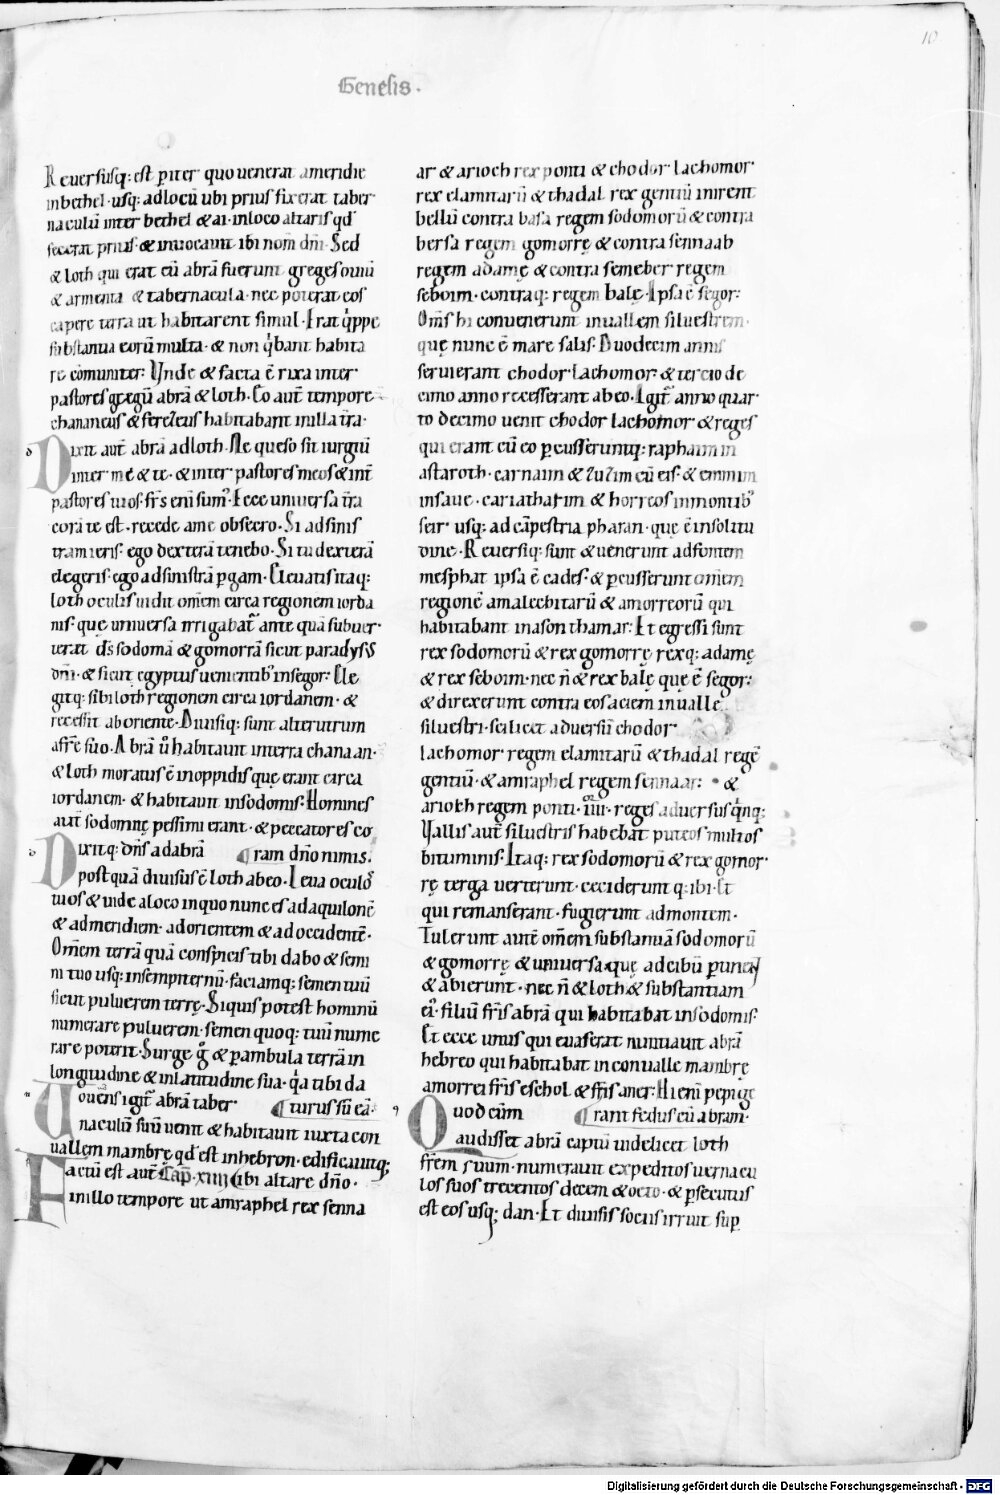 10
Genesis.
Reuersusq: est p̄iter quo uenerat a meridie
in bethel. usq: ad locū ubi prius fixerat taber
naculū inter bethel & ai. in loco altaris qđ
fecerat prius. & inuocauit ibi nom̄ dñi. Sed
& loth qui erat cū abrā fuerunt greges ouiū
& armenta & tabernacula. nec poterat eos
capere terra ut habitarent simul. Erat q̍ppe
substantia eorū multa. & non q̍bant habita
re cōmuniter: Vnde & facta ē rixa inter
pastores gregū abrā & loth. Eo aut̄ tempore
chananeus & ferezeus habitabant in illa t̄ra.
Dixit aut̄ abrā ad loth. Ne queso sit iurgiū
inter me & te. & inter pastores meos & int̄
pastores tuos. frs̄ enī sum'. Ecce uniuersa t̄ra
corā te est. recede a me obsecro. Si ad sinis
tram ieris. ego dexterā tenebo. Si tu dexterā
elegeris. ego ad sinistrā pergam. Eleuatis itaq:
loth oculis uidit om̄em circa regionem iorda
nis. quę uniuersa irrigabat̄ ante quā subuer
teret dš sodomā & gomorrā sicut paradysus
dñi. & sicut egyptus uenientib' in segor: Ele
gitq: sibi loth regionem circa iordanem. &
recessit ab oriente. Diuisiq: sunt alterutrum
a fr̄e suo. Abrā ů habitauit in terra chanaan.
& loth moratus ē in oppidis quę erant circa
iordanem. & habitauit in sodomis. Homines
aut̄ sodomitę pessimi erant. & peccatores co
Dixitq: dñs ad abrā ¶ ram dño nimis.
postquā diuisus ē loth ab eo. Leua oculo'
tuos & uide a loco in quo nunc es ad aquilonē
& ad meridiem. ad orientem & ad occidentē.
Omēm terrā quā conspicis tibi dabo & semi
ni tuo usq: in sempiternū. faciamq: semen tuū
sicut puluerem terrę. Siquis potest hominū
numerare puluerem. semen quoq: tuū nume
rare poterit. Surge g̊ & p̱ambula terrā in
longitudine & in latitudine sua. q̍a tibi da
Mouens igit̄ abrā taber ¶ turus sū eā:
naculū suū uenit & habitauit iuxta con
uallem mambrę qđ est in hebron. edificauitq;
Factū est aut̄ Cap̄. xiiii ( ibi altare dño.
in illo tempore ut amraphel rex senna
ar & arioch rex ponti & chodorlachomor
rex elamitarū & thadal rex gentiū inirent
bellū contra basa regem sodomorū & contra
bersa regem gomorrę & contra sennaab
regem adamę & contra semeber regem
seboim. contraq: regem balę. Ipsa ē segor:
Om̄s hi conuenerunt in uallem siluestrem.
quę nunc ē mare salis. Duodecim annis
seruierant chodorlachomor. & tercio de
cimo anno recesserant ab eo. Igit̄ anno quar
to decimo uenit chodorlachomor & reges
qui erant cū eo p̱cusseruntq: raphaim in
astaroth. carnaim & zuzim cū eis. & emmim
in saue. cariathatim & horreos in montib'
seir. usq: ad cāpestria pharan. que ē in solitu
dine. Reuersiq: sunt & uenerunt ad fontem
mesphat ipsa ē cades. & p̱cusserunt om̄em
regionē amalechitarū & amorreorū qui
habitabant in asonthamar: Et egressi sunt
rex sodomorū & rex gomorrę. rexq: adamę
& rex seboim. nec ñ & rex balę quę ē segor:
& direxerunt contra eos aciem in ualle
siluestri. scilicet aduersū chodor
lachomor regem elamitarū & thadal regē
gentiū. & amraphel regem sennaar: &
arioth regem ponti. iiii. reges aduersus q̍nq:
Vallis aut̄ siluestris habebat puteos multos
bituminis. Itaq: rex sodomorū & rex gomor
rę terga uerterunt. ceciderunt q: ibi. Et
qui remanserant. fugierunt ad montem.
Tulerunt autē om̄em substantiā sodomorū
& gomorrę & uniuersa quę ad cibū p̱tinent
& abierunt. nec ñ & loth & substantiam
ei'. filiū fr̄is abrā qui habitabat in sodomis.
Et ecce unus qui euaserat nuntiauit abrā
hebreo qui habitabat in conualle mambrę
amorrei fr̄is eschol & fr̄is aner. Hi enī pepige
Quod cūm ¶ rant fędus cū abram.
audisset abrā captū uidelicet loth
fr̄em suum. numerauit expeditos uernacu
los suos trecentos decem & octo. & p̱secutus
est eos usq; dan. Et diuisis sociis irruit sup̱
Digitalisierung gefördert durch die Deutsche Forschungsgemeinschaft - DFG